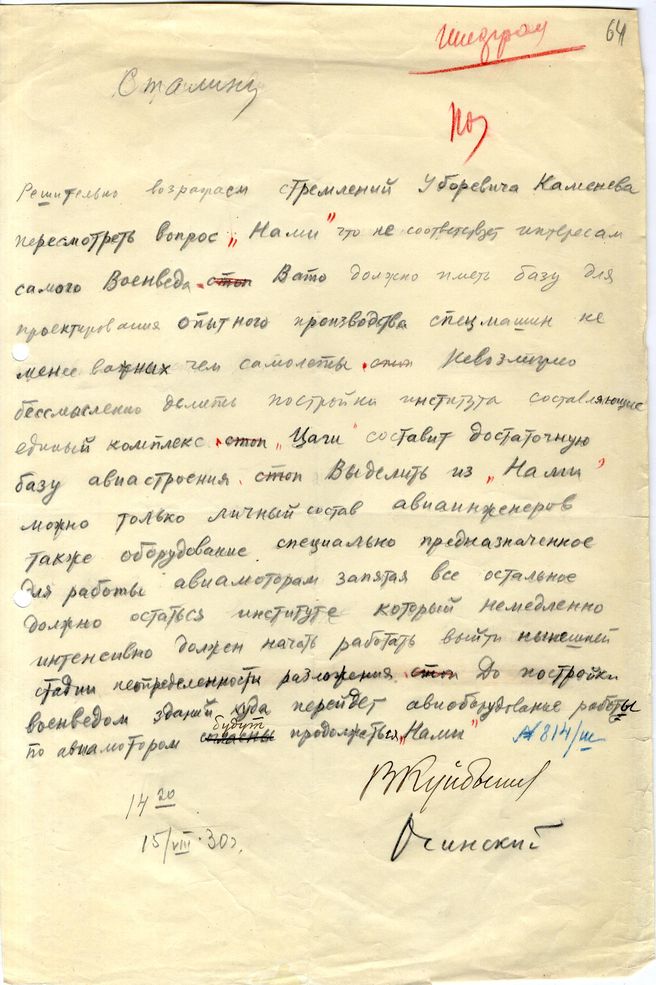 Шифром
64
Сталину
Решительно возражаем стремлений Уборевича Каменева
пересмотреть вопрос „Нами" что не соответствует интересам
самого Военведа. стоп Вато должно иметь базу для
проектирования опытного производства спецмашин не
менее важных чем самолеты. стоп Невозможно
бессмысленно делить постройки института составляющие
единый комплекс. стоп „Цаги" составит достаточную
базу авиастроения. стоп Выделить из „Нами"
можно только личный состав авиаинженеров
также оборудование специально предназначенное
для работы авиамоторам запятая все остальное
должно остаться институте который немедленно
интенсивно должен начать работать выйти нынешней
стадии неопределенности разложения. стоп До постройки
военведом зданий куда перейдет авиоборудование работы
по авиамотором будут продолжаться „Нами"
№ 814/ш
ВКуйбышев
Осинский
14 20
15/VIII·30г.